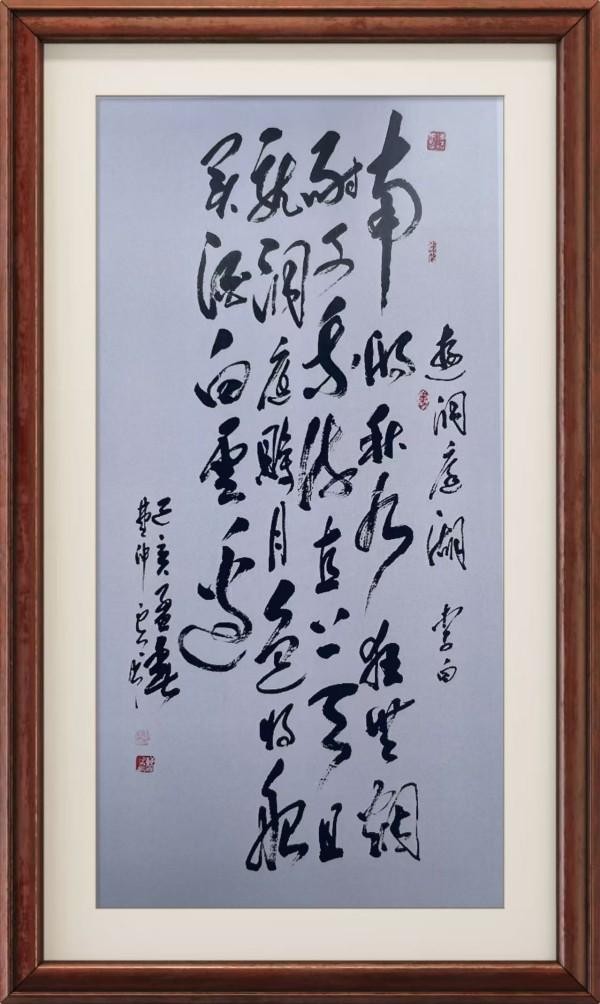 遊洞庭湖 李白
南湖秋水夜無烟
耐可乘流直上天且
就洞庭賒月色將船
买酒白雲邊
己亥孟春